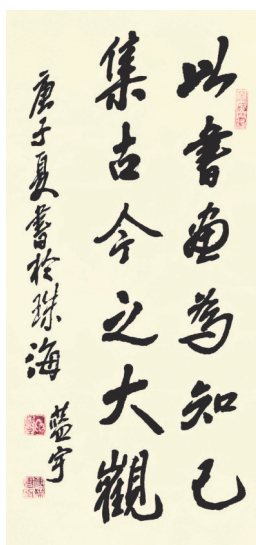 以書畫為知己
集古今之大觀
庚子夏書於珠海
藍宇